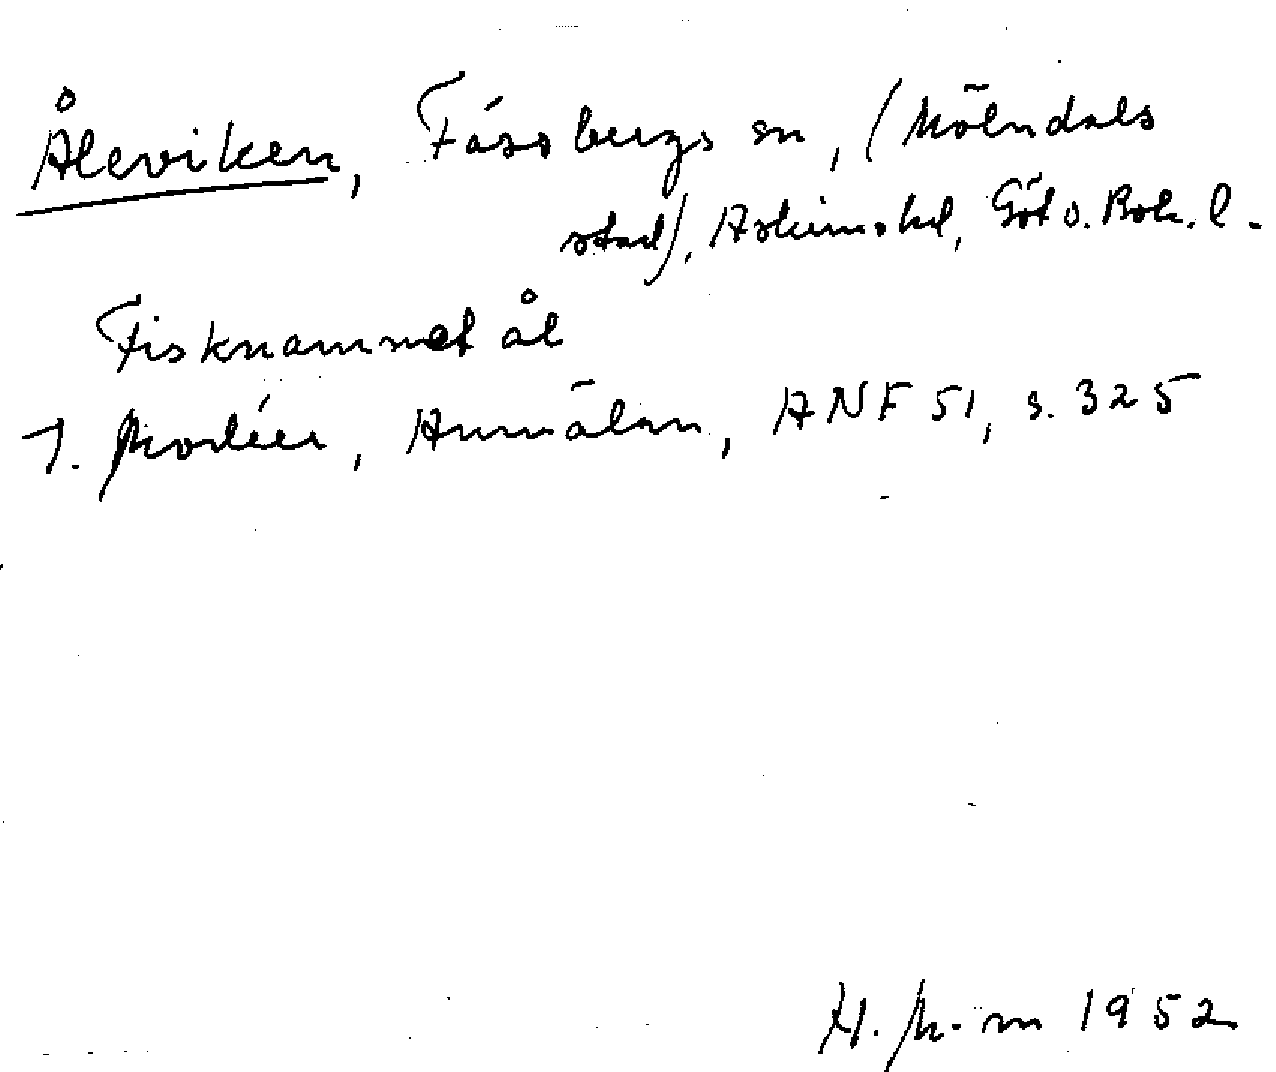 Åleviken, Fässbergs sn, (Mölndals
stad), Askims hd, Göt o. Boh. l.
Fisknamnet ål
I. Modéer, Anmälan, ANF 51, s. 325
H. M-m 1952